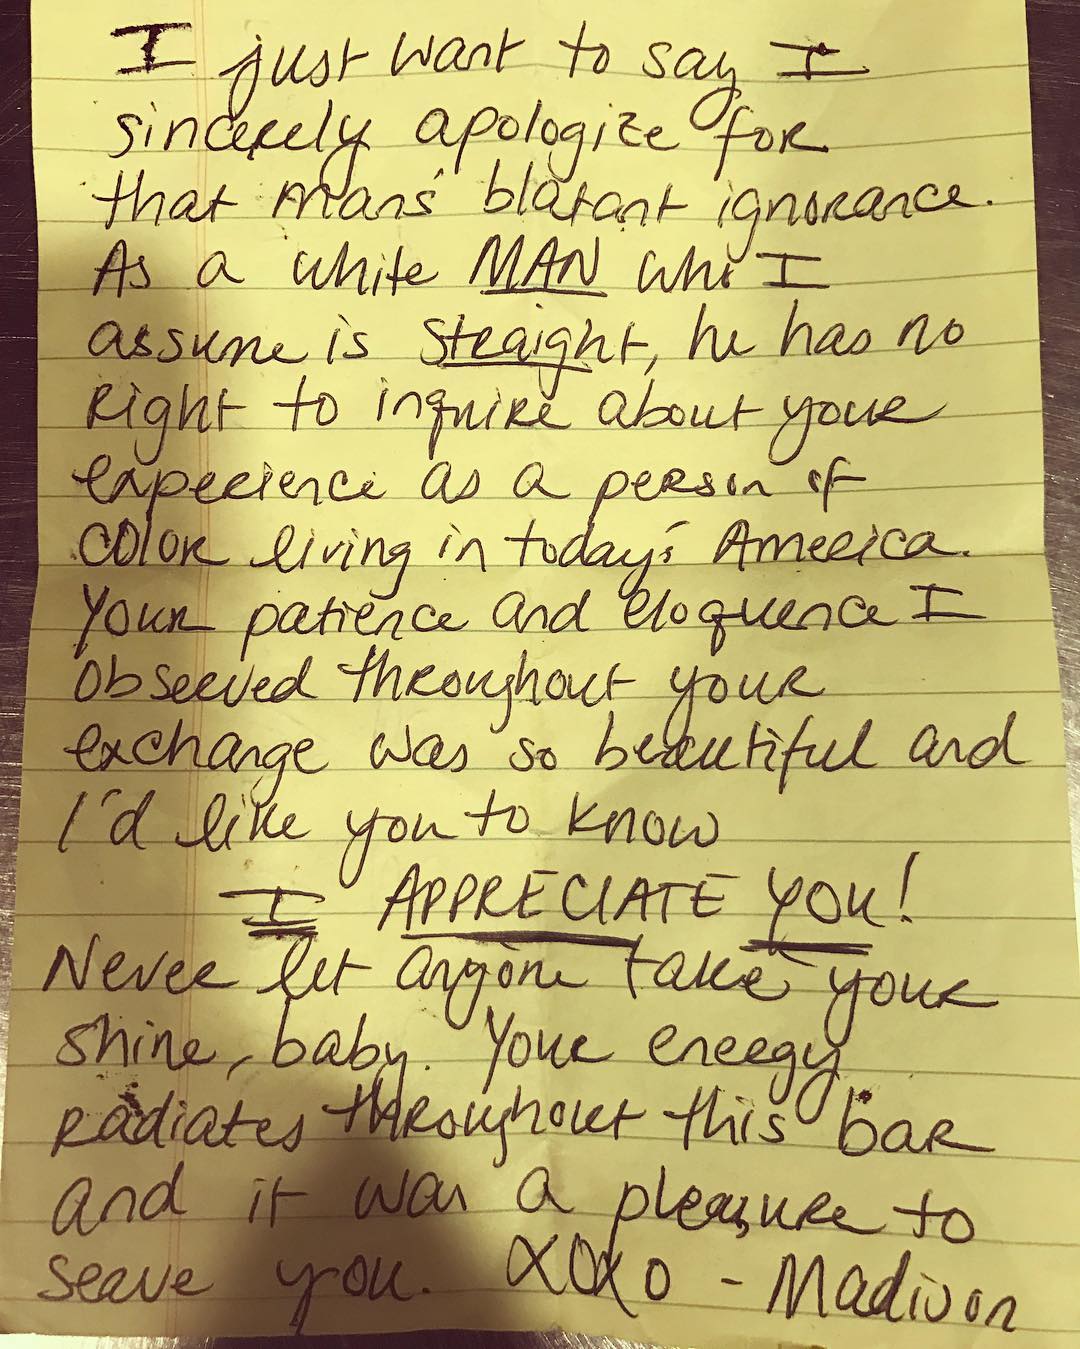 I just want to say I
sincerely apologize for
that mans' blatant ignorance.
As a white MAN who I
assume is straight, he has no
right to inquire about your
experience as a person of
color living in today's America.
Your patience and eloquence I
observed throughout your
exchange was so beautiful and
I'd like you to know
I APPRECIATE YOU!
Never let anyone take your
shine, baby. Your energy
radiates throughout this bar
and it was a pleasure to
serve you. XOXO - Madison